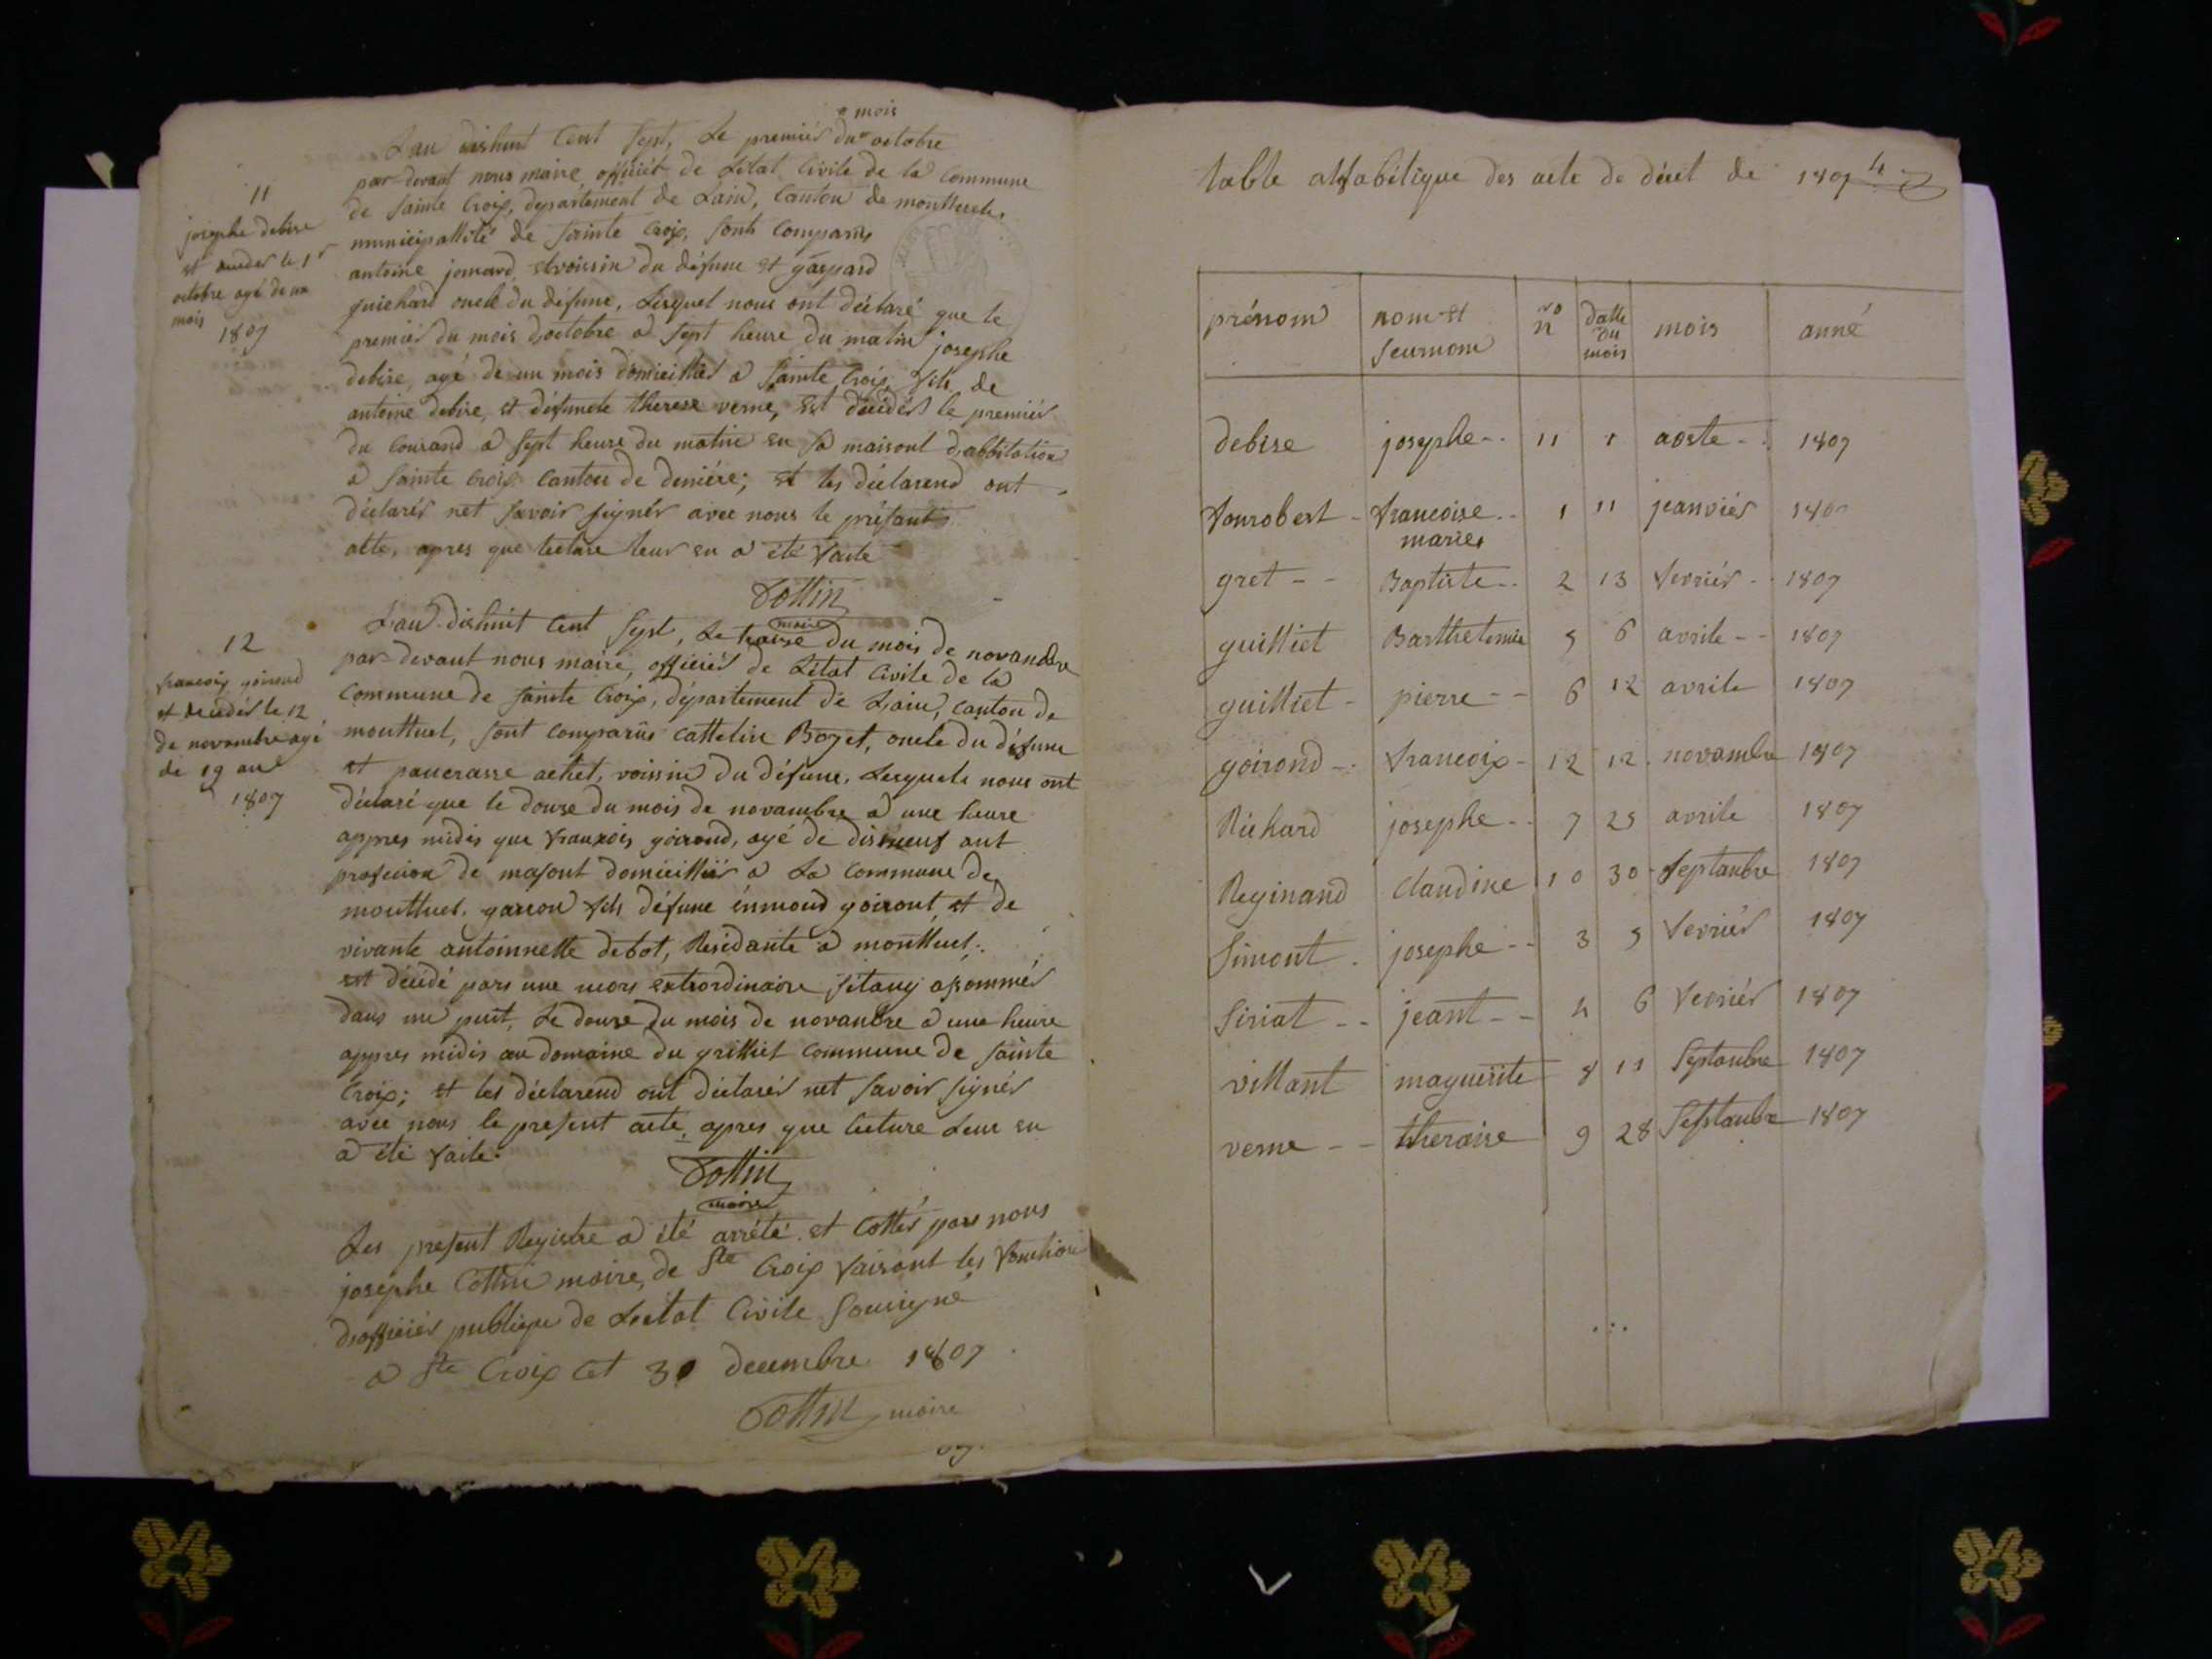 mois
Lan dishuit Cent Sept, Le premiér du octobre
par-devant nous maire officiér de Létat Civile de la Commune
de Sainte Croix, département de Lain, Canton de montluele,
municipallité de Sainte Croix, Sont Comparûs
antoine jomard, voissin du défunc et gaspard
guichard oncle du défunc, Lesquel nous ont déclaré que le
premiér du mois d'octobre a Sept heure du matin josephe
debise, agé de un mois domicilliér a Sainte Croix, fils de
antoine debise, et défuncte therese verne, Est décidér le premiér
du Courand a Sept heure du matin en Sa maisont d'abbitation
a Sainte Croix Canton de ; et les déclarend ont
déclarér net Savoir Signér avec nous le présant
atte, apres que lecture leur en a été faite
Cottin
maire
11
josephe debise
et decidér le 1r
octobre agé de un
mois
1807
Lan dishuit Cent Sept, Le traise du mois de novanbre
par-devant nous maire, officiér de Létat Civile de la
Commune de Sainte Croix, département de Lain, canton de
montluel, Sont Comparûs Cattelin Bozet, oncle du défunc
et pancrasse achet, voissin du défunc, Lesquels nous ont
déclaré que le douse du mois de novambre a une heure
appres midis que françois goirond, agé de disneuf ant
profecion de masont domicilliér a La Commune de
montluel. garcon fils défunc énmond goiront, et de
vivante antoinnette debot, Residante a montluel.
est décidé pars une mors extrordinaire Sitang asommér
dans un puit, Le douse du mois de novanbre a une heure
appres midis au domaine du grilliet Commune de Sainte
Croix; et les déclarend ont déclarér net Savoir Signér
avec nous le present acte, apres que lecture Leur en
a été faite.
Cottin
maire
12
francoix goirond
et decidér le 12
de novambre agé
de 19 ans
1807
Les present Registre a été arrété et Cottér pars nous
josephe Cottin maire, de Ste Croix faisant les fonction
d'officiér publique de Letat Civile Sousigné
a Ste Croix Cet 31 decembre 1807
Cottin maire
table alfabétique des acte de décet de 1807
4
prénom nom et seurnom no n datte du mois mois anné
debise josephe 11 1 aoste 1807
fourobert francoise marie 1 11 jeanviér 1807
gret Baptiste 2 13 fevriér 1807
guilliet Barthelemie 5 6 avrile 1807
guilliet pierre 6 12 avrile 1807
goirond francoix 12 12 novambre 1807
Richard josephe 7 25 avrile 1807
Reginand Claudine 10 30 Septanbre 1807
Simont josephe 3 5 fevriér 1807
Siriat jeant 4 6 fevriér 1807
villant maguerite 8 11 Septanbre 1807
verne theraise 9 28 Septanbre 1807